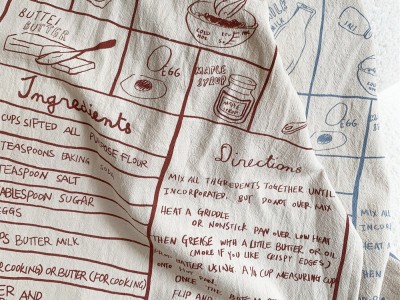 BUTTER
EGG
MAPLE
SYRUP
MAPLE
SYRUP
MILK
EGG
Ingredients
CUPS SIFTED ALL PURPOSE FLOUR
TEASPOONS BAKING SODA
TEASPOON SALT
TABLESPOON SUGAR
EGGS
BUTTER MILK
FOR COOKING) OR BUTTER (FOR COOKING)
BUTTER AND
Directions
MIX ALL INGREDIENTS TOGETHER UNTIL
INCORPORATED, BUT DO NOT OVER MIX
HEAT A GRIDDLE
OR NONSTICK PAN OVER LOW HEAT
THEN GREASE WITH A LITTLE BUTTER OR OIL
(MORE IF YOU LIKE CRISPY EDGES)
BATTER USING A ¼ CUP MEASURING CUP
ONTO THE PAN
ONCE THE
FLIP AND
MIX ALL
INCORPOR
HEAT A
THEN